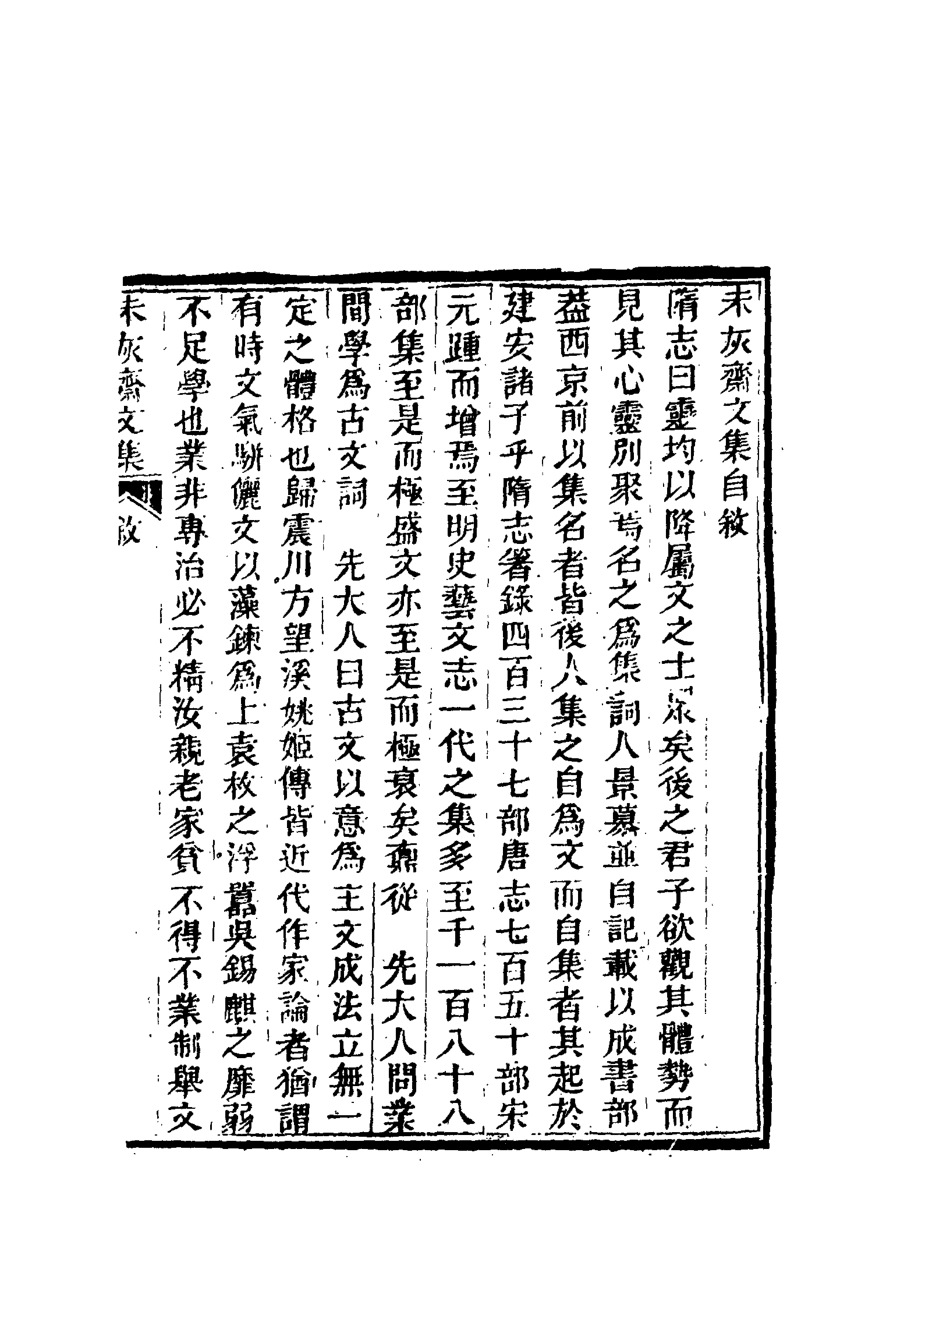 未灰齋文集自敘
隋志曰靈均以降屬文之士眾矣後之君子欲觀其體勢而
見其心靈別聚焉名之爲集詞人景慕並自記載以成書部
葢西京前以集名者皆後人集之自爲文而自集者其起於
建安諸子乎隋志箸錄四百三十七部唐志七百五十部宋
元踵而增焉至明史藝文志一代之集多至千一百八十八
部集至是而極盛文亦至是而極衰矣鼒從 先大人問業
間學爲古文詞 先大人曰古文以意爲主文成法立無一
定之體格也歸震川方望溪姚姬傳皆近代作家論者猶謂
有時文氣駢儷文以藻鍊爲上袁枚之浮囂吳錫麒之靡弱
不足學也業非專治必不精汝親老家貧不得不業制舉文
未灰齋文集 敘